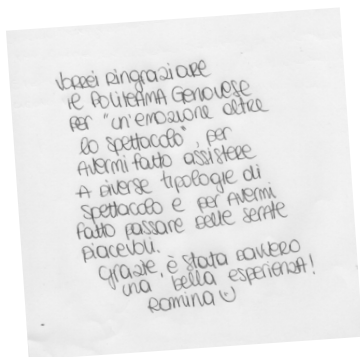 Vorrei ringraziare
il POLITEAMA Genovese
per "un'emozione oltre
lo spettacolo", per
avermi fatto assistere
a diverse tipologie di
spettacolo e per avermi
fatto passare delle serate
piacevoli.
Grazie, è stata davvero
una bella esperienza!
Romina ☺